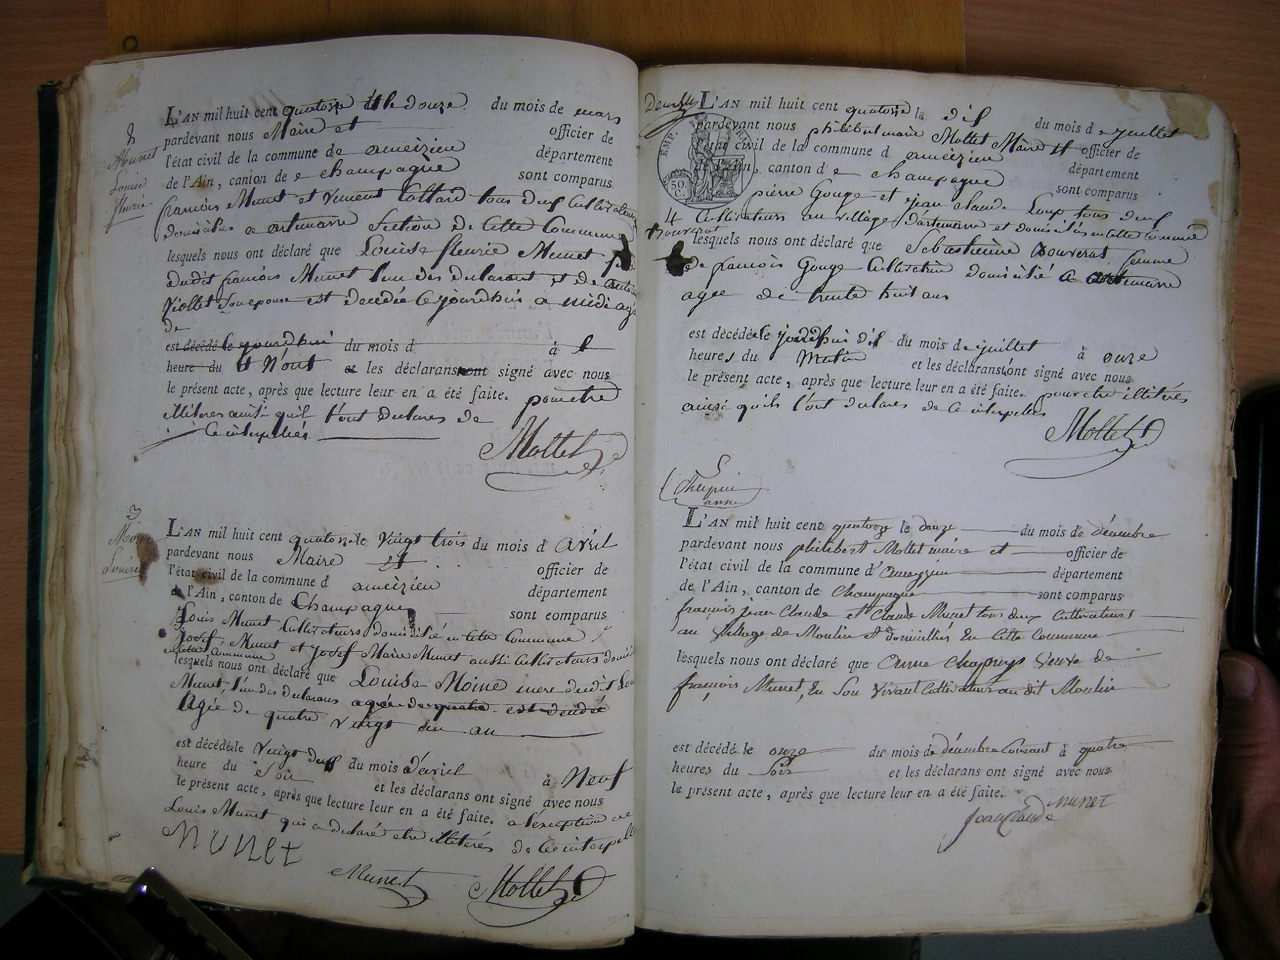 8
Munet
Louise
fleurie
L'AN mil huit cent quatorze le douze du mois de mars
pardevant nous Maire et officier de
l'état civil de la commune de ameizieu département
de l'Ain, canton de champagne sont comparus
françois Munet et vincent Cottard tous deux Cultivateurs
domiciliés a artemarre Section de Cette Commune
lesquels nous ont déclaré que Louise fleurie Munet
dudit françois Munet l'un des declarant et de
Viollet Son epouse est decedée Ce jourdhui a midi agé
de
est décédé le jourdhui du mois d à
heure du et les déclarans ont signé avec nous
le présent acte, après que lecture leur en a été faite. pour etre
illiteres ainsi qu'il l'ont declares de
Ce interpellés
Mollet
3
Moine
Louise
L'AN mil huit cent quatorze le vingt trois du mois d avril
pardevant nous Maire et officier de
l'état civil de la commune d ameizieu département
de l'Ain, canton de Champagne sont comparus
Louis Munet Cultivateurs domicilié en cette Commune
Josef Munet et Josef Maire Munet aussi Cultivateurs
Commune
lesquels nous ont déclaré que Louise Moine mere dudit
Munet, l'un des declarans agée de quatre est decedée
Agée de quatre vingt un an
est décédé le vingt deux du mois d'avril à Neuf
heure du Soir et les déclarans ont signé avec nous
le présent acte, après que lecture leur en a été faite. a l'exception de
Louis Munet qui a declaré etre illiterés de Ce interpellé
MUNET
Munet Mollet
EMP.
50 C.
L'AN mil huit cent quatorze le dix du mois d e juillet
pardevant nous philibert marie Mollet Maire et officier de
l'état civil de la commune d ameizieu département
de l'Ain, canton d e champagne sont comparus
pierre Gouge et jean claude Loup tous deux
4
bouverat
Cultivateurs au village d'artemarre et domiciliés en cette Commune
lesquels nous ont déclaré que Sebastienne bouverat femme
de françois Gouge Cultivateur domicilié a artemarre
agee de trente huit ans
est décédé le jourdhui dix du mois de juillet à onze
heures du Matin et les déclarans ont signé avec nous
le présent acte, après que lecture leur en a été faite. pour etre illiterés
ainsi qu'ils l'ont declares de Ce interpellés
Mollet
anne
L'AN mil huit cent quatorze le douze du mois de décembre
pardevant nous philibert Mollet maire et officier de
l'état civil de la commune d'ameyzieu département
de l'Ain, canton de Champagne sont comparus
françois jean Claude et Claude Munet tous deux Cultivateurs
au village de Moulin et domiciliés En Cette Commune
lesquels nous ont déclaré que anne Chapuys veuve de
françois Munet, En Son vivant Cultivateur au dit Moulin
est décédé le onze du mois de décembre Courant à quatre
heures du Soir et les déclarans ont signé avec nous
le présent acte, après que lecture leur en a été faite.
jean Claude MUNET